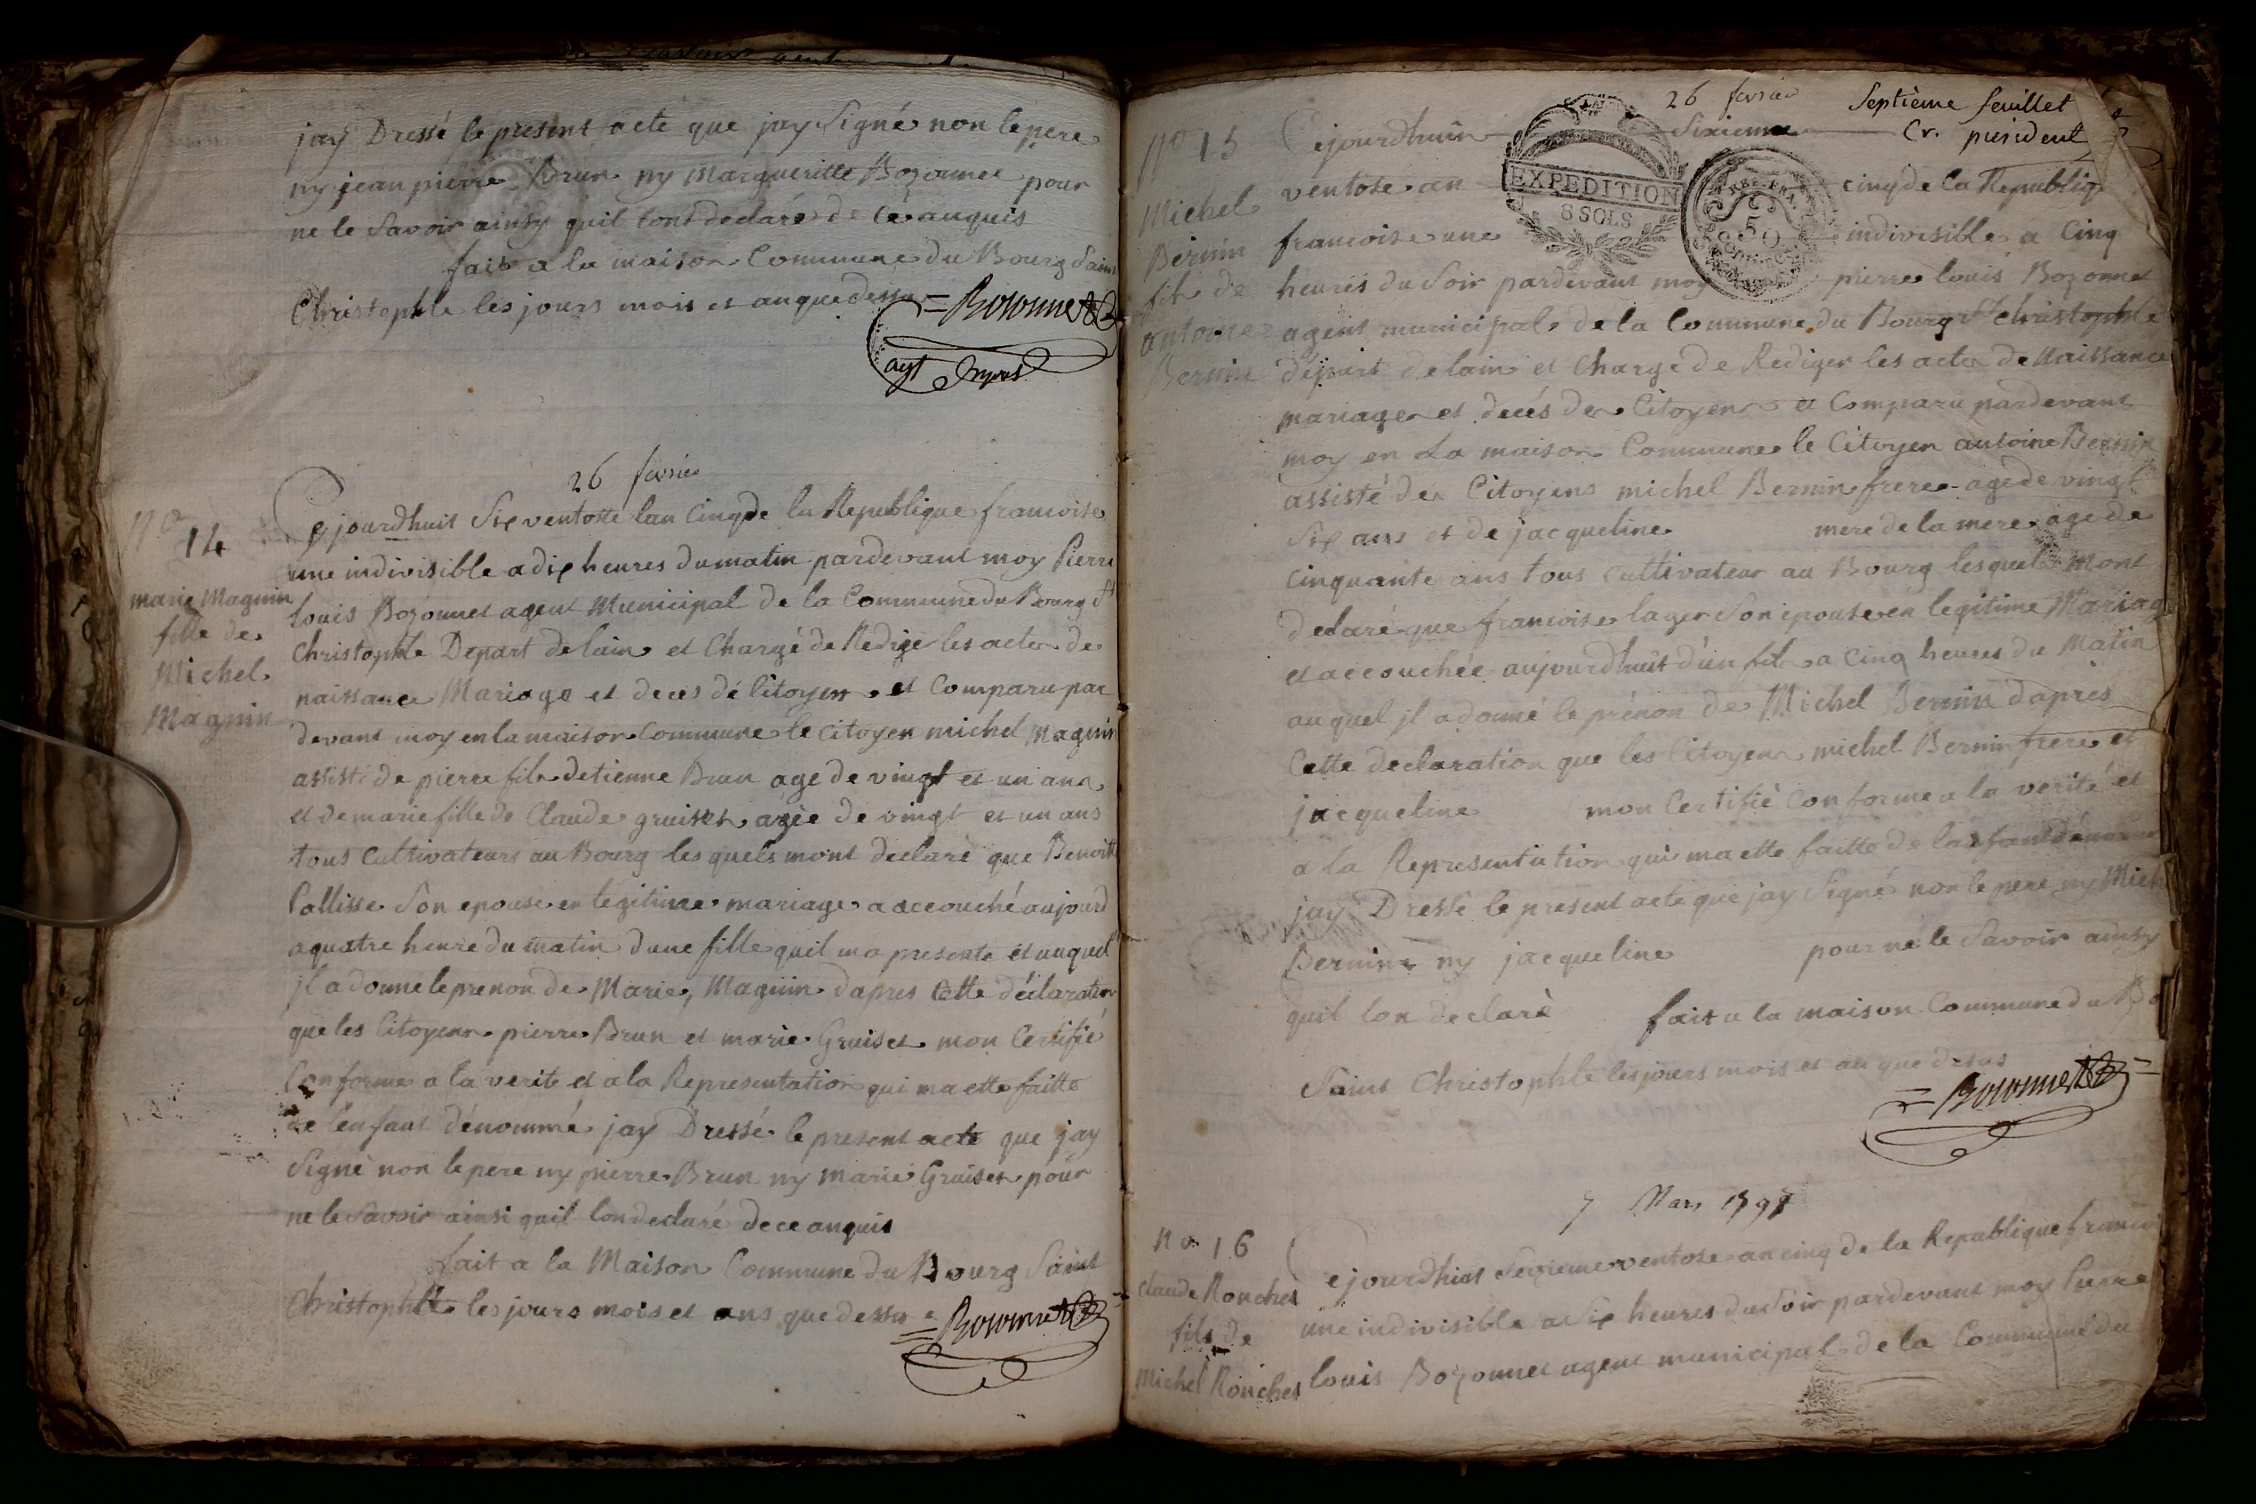 jay Dressé le present acte que jay Signé non le pere
ny jean pierre Brun ny Margueritte Bozonnet pour
ne le Savoir ainsy quil lont declaré de ce anquis
fait a la maison Commune du Bourg Saint
Christophle les jours mois et an que dessu
= Bozonnet
agt
26 fevrier
No 14
marie Magnin
fille de
Michel
Magnin
Cejourdhuit Six ventosse lan Cinq de la Republique francoise
une indivisible a dix heures du matin pardevant moy Pierre
louis Bozonnet agent Municipal de la Commune du Bourg St
Christophle Depart de lain et Chargé de Redige les actes de
naissance Mariage et deces dé Citoyen et Comparu par
devant moy en la maison Commune le Citoyen michel Magnin
assisté de pierre fils detienne Brun age de vingt et un ans
et de marie fille de Claude gruiset agée de vingt et un ans
tous Cultivateurs au Bourg les quels mont declaré que Benoitte
Pallisse Son epouse en legitime mariage a accouché aujourd
a quatre heure du matin dune fille quil ma presenté et auquel
jl a donné le prenon de Marie, Magnin dapres Cette déclaration
que les Citoyens pierre Brun et marie Gruiset mon Certifié
Conforme a la verite et a la Representation qui ma ette faitte
de lenfant dénommé jay Dressé le present acte que jay
Signé non le pere ny pierre Brun ny marie Gruiset pour
ne le Savoir ainsi quil londeclaré de ce anquis
fait a la Maison Commune du Bourg Saint
Christophle les jours mois et ans que dessus
= Bozonnet
26 fevrier
Septième feuillet
Cr. president
No 15
Michel
Bernin
fils de
antoine
Bernin
Cejourdhuin Sixieme
EXPEDITION
8 SOLS
ventose an cinq de la Republiq
50
francoise une indivisible a Cinq
heures du Soir pardevant moy pierre louis Bozonnet
agent municipal de la Commune du Bourg St Christophle
depart de lain et Charge de Rediger les actes de Naissance
mariages et decés des Citoyens et Comparu pardevant
moy en La maison Commune le Citoyen antoine Bernin
assisté des Citoyens michel Bernin frere age de vingt
Six ans et de jacqueline mere de la mere age de
Cinquante ans tous Cultivateur au Bourg lesquels Mont
declaré que francoise lager Son epouse en legitime Mariage
et accouchée aujourdhuit d'un fils a Cinq heures du Matin
auquel jl a donné le prénon de Michel Bernin dapres
Cette declaration que les Citoyens michel Bernin frere et
jacqueline mon Certifié Conforme a la verité et
a la Representation qui ma ette faitte de lanfant dénommé
jay Dressé le present acte que jay Signé non le pere ny Mich
Bernin ny jacqueline pour né le Savoir ainsy
quil lon declaré fait a la maison Commune du Bo
Saint Christophle les jours mois et an que desus
= Bozonnet =
7 Mars 1797
No 16
Claude Ronchet
fils de
Michel Ronchet
Cejourdhiat Sezieme ventose an cinq de la Republique francoi
une indivisible a Six heures du Soir pardevant moy Pierre
louis Bozonnet agent municipal de la Commune du